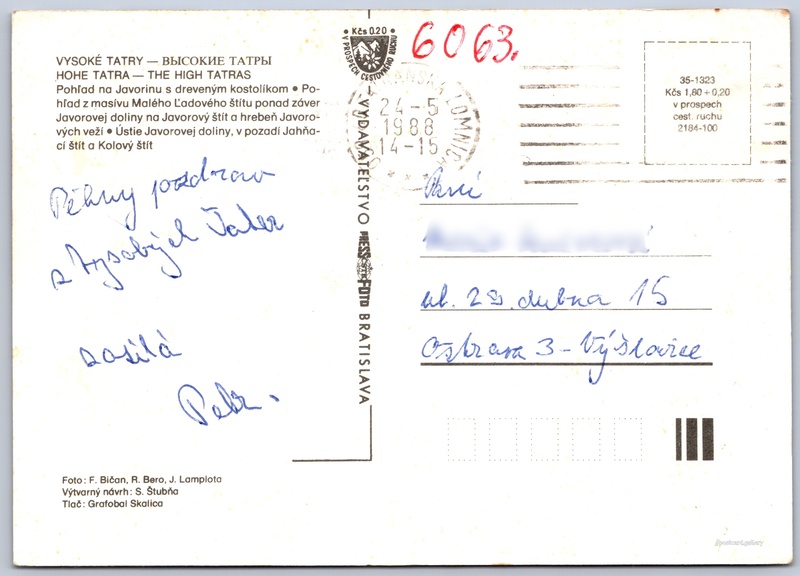 VYSOKÉ TATRY — ВЫСОКИЕ ТАТРЫ
HOHE TATRA — THE HIGH TATRAS
Pohľad na Javorinu s dreveným kostolíkom ● Po-
hľad z masívu Malého Ľadového štítu ponad záver
Javorovej doliny na Javorový štít a hrebeň Javoro-
vých veží ● Ústie Javorovej doliny, v pozadí Jahňa-
cí štít a Kolový štít
Pěkný pozdrav
z Vysokých Tater
zasílá
Petr.
Foto: F. Bičan, R. Bero, J. Lamplota
Výtvarný návrh: S. Štubňa
Tlač: Grafobal Skalica
Kčs 0.20
V PROSPECH CESTOVNÉHO RUCHU
VYDAVATEĽSTVO PRESSFOTO BRATISLAVA
6063.
LOMNICA
24-5
1988
14-15
35-1323
Kčs 1,80 + 0,20
v prospech
cest. ruchu
2184-100
Paní
ul. 28. dubna 15
Ostrava 3 - Výškovice